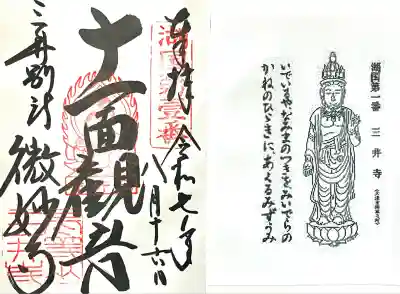 奉拝 令和七年
八月十六日
湖国第壱番
十一面觀音
三井別所
微妙寺
湖国第一番 三井寺
いでいるやなみまのつきをみいでらの
かねのひびきに、あくるみずうみ